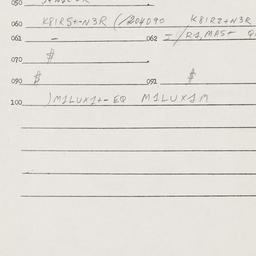 050
060 K8IR5+-N3R (/204090 K8IR2+N3R
061 - 062 I/R1,MAS+
070 $
090 $ 091 $
100 )M1LUX1+- EQ M1LUX1M